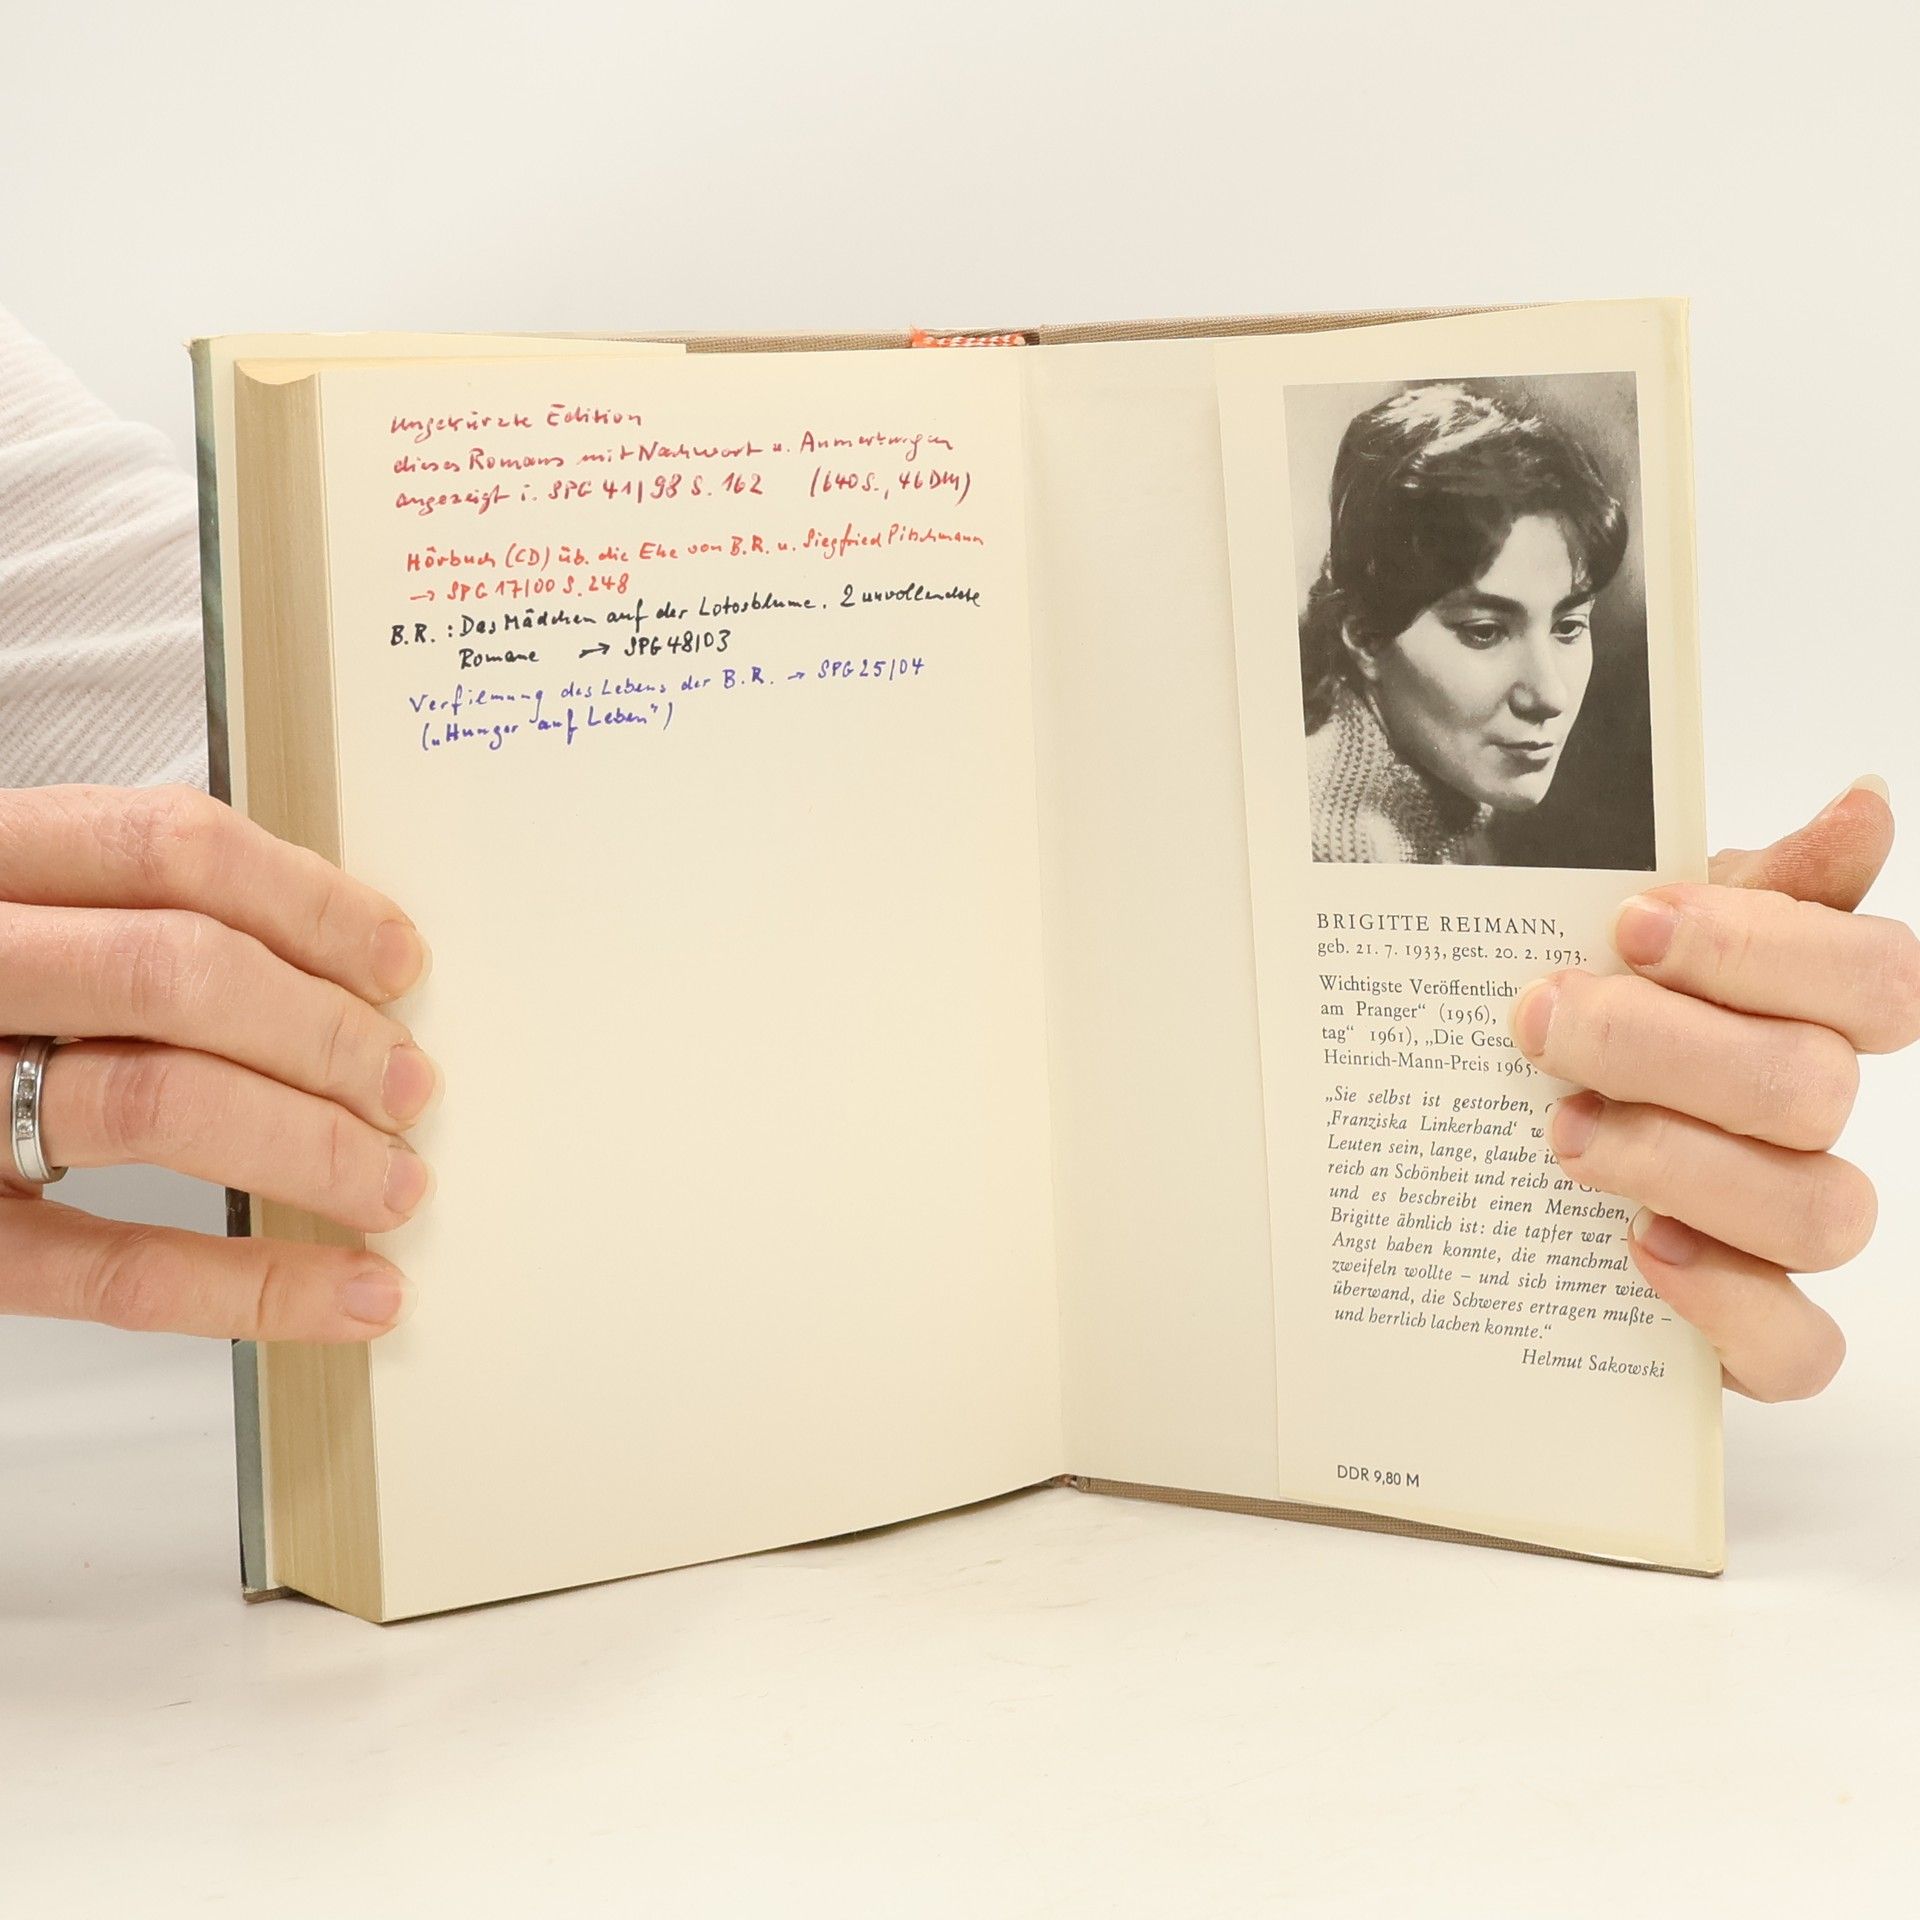 Ungekürzte Edition
dieses Romans mit Nachwort u. Anmerkungen
angezeigt i. SPG 41/98 S. 162 (640 S., 46 DM)
Hörbuch (CD) üb. die Ehe von B.R. u. Siegfried Pitschmann
→ SPG 17/00 S. 248
B.R.: Das Mädchen auf der Lotosblume. 2 unvollendete
Romane → SPG 48/03
Verfilmung des Lebens der B.R. → SPG 25/04
(„Hunger auf Leben")
BRIGITTE REIMANN,
geb. 21. 7. 1933, gest. 20. 2. 1973.
Wichtigste
am Pranger“ (1956),
tag“ 1961), „Die
Heinrich-Mann-Preis 1965.
„Sie selbst ist gestorben,
‚Franziska Linkerhand‘
Leuten sein, lange, glaube
reich an Schönheit und reich an
und es beschreibt einen Menschen,
Brigitte ähnlich ist: die tapfer war –
Angst haben konnte, die manchmal
zweifeln wollte – und sich immer
überwand, die Schweres ertragen mußte –
und herrlich lachen konnte.“
Helmut Sakowski
DDR 9,80 M